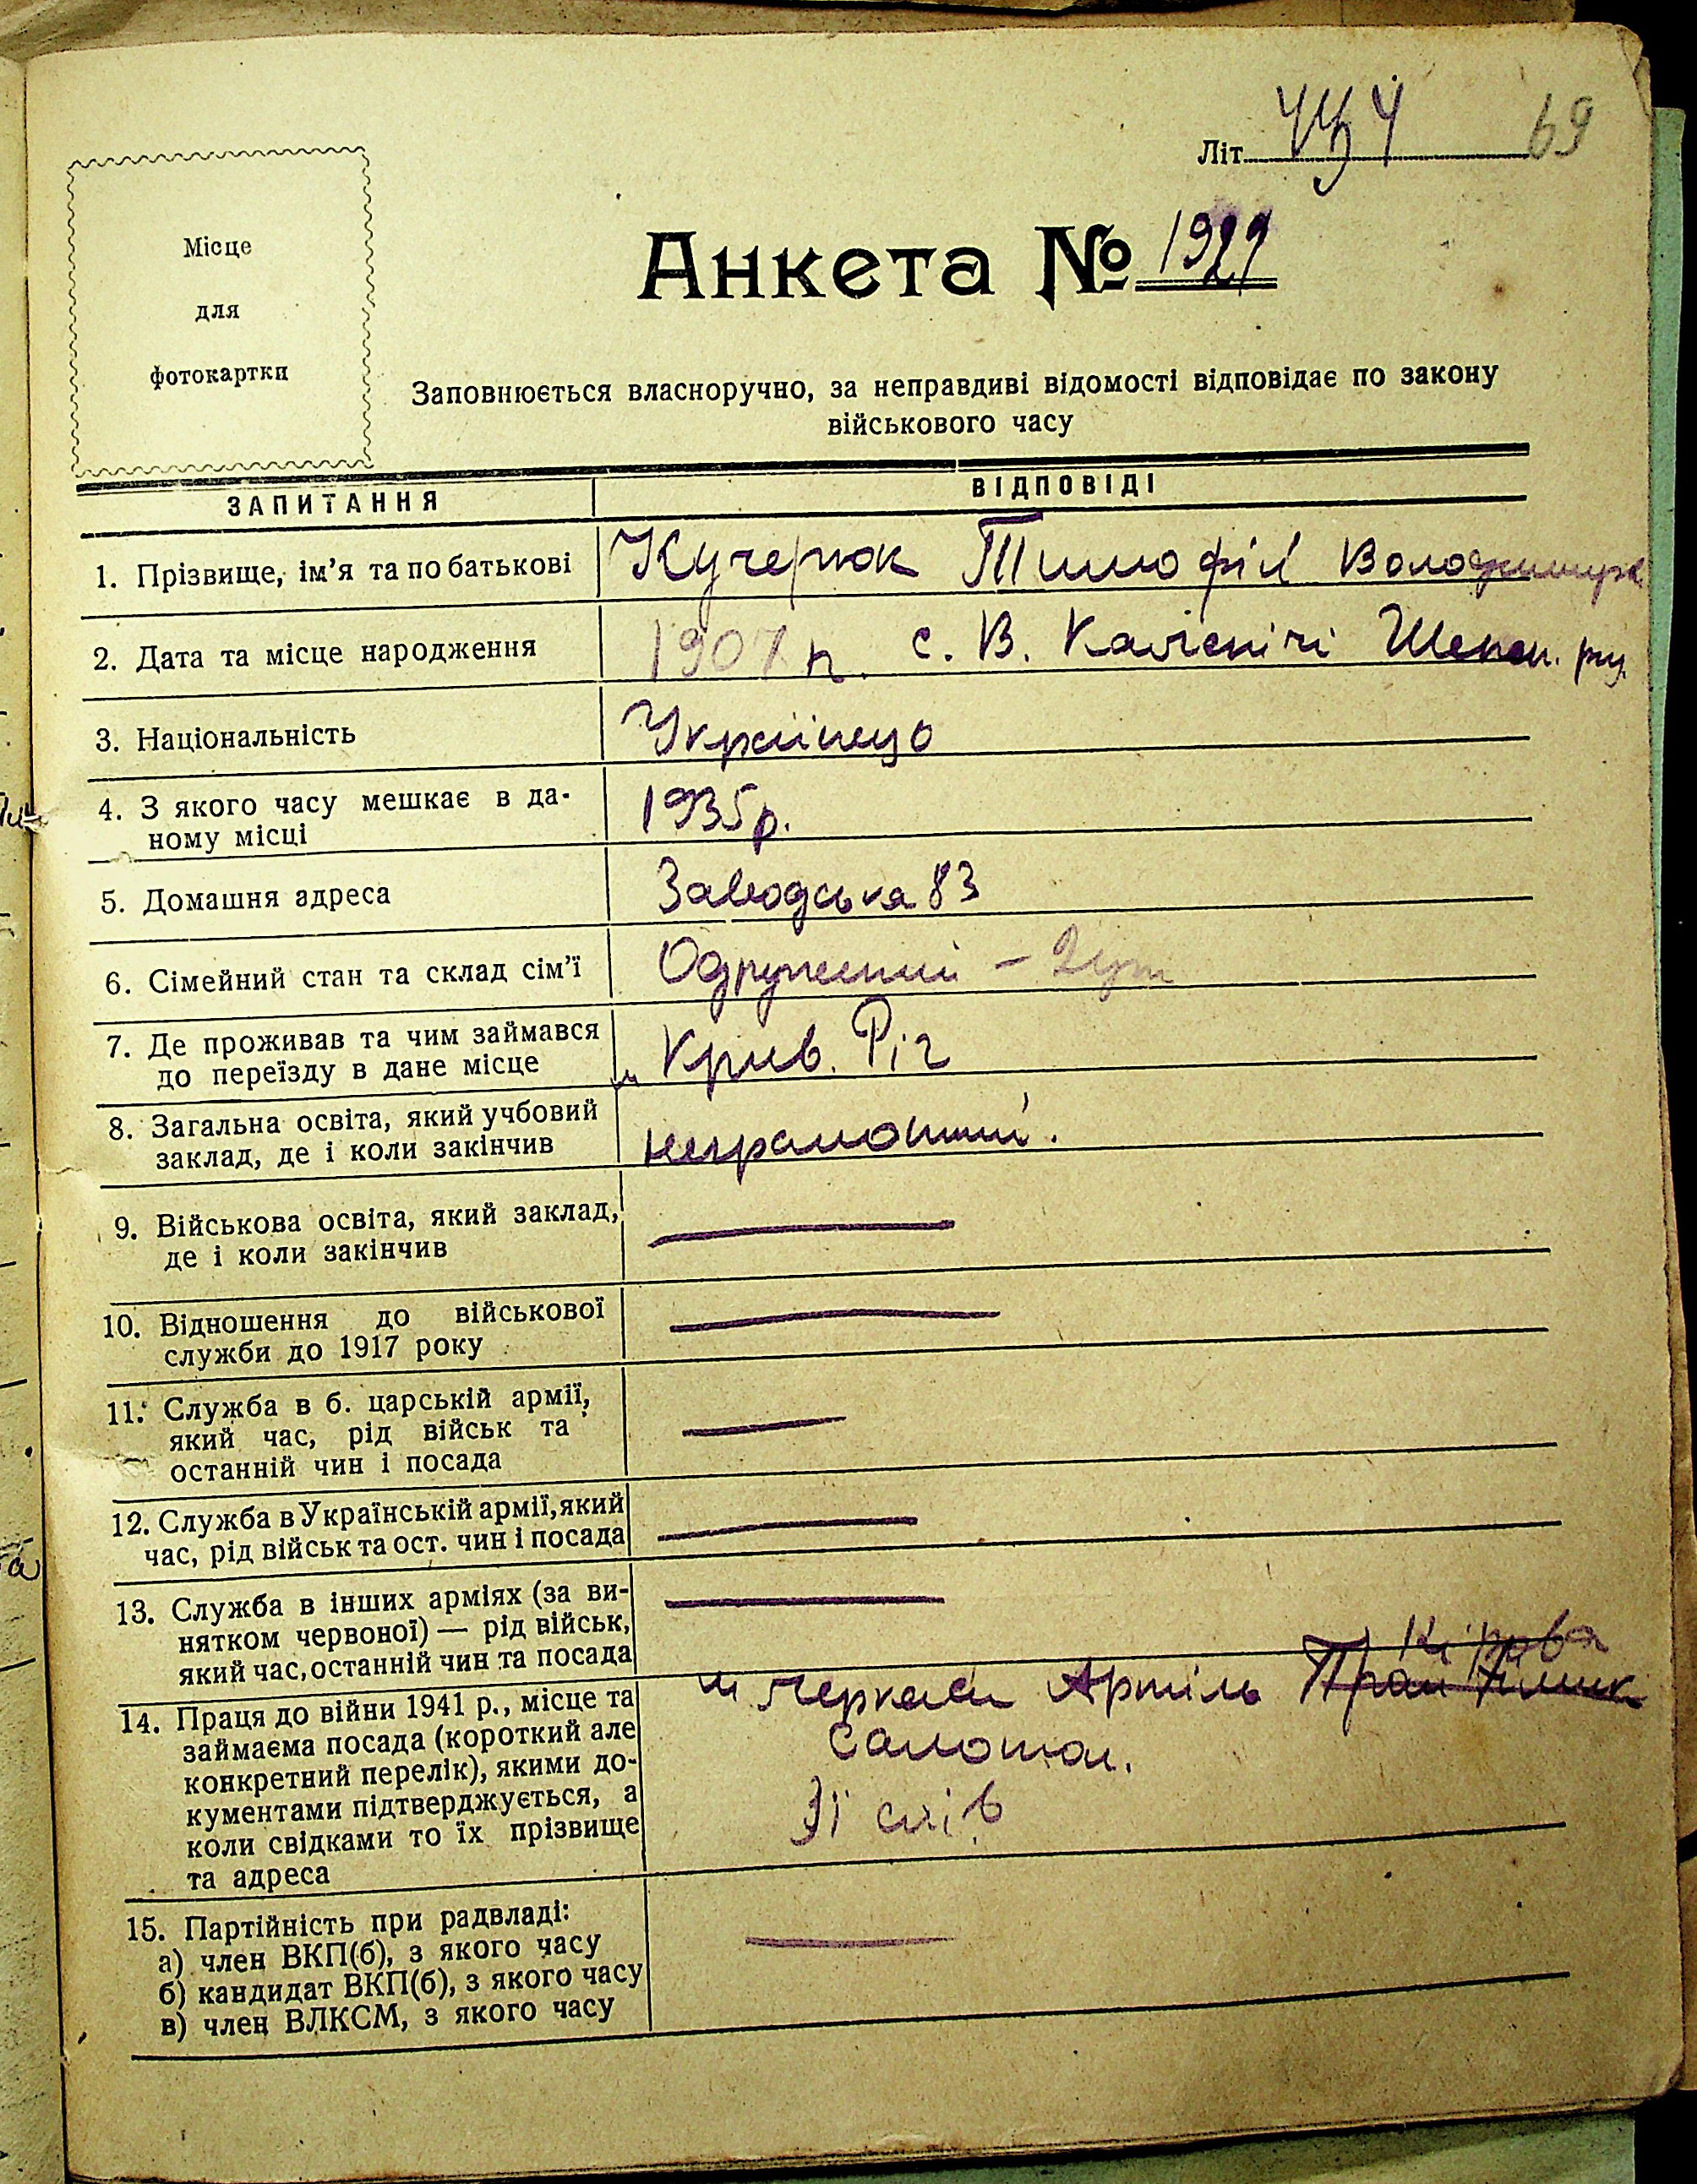 Літ. 69
Місце
для
фотокартки
Анкета № 1929
Заповнюється власноручно, за неправдиві відомості відповідає по закону
військового часу
ЗАПИТАННЯ ВІДПОВІДІ
1. Прізвище, ім’я та по батькові Кучерюк Тимофій
2. Дата та місце народження 1907 р. с. В. Калєнічі
3. Національність Українець
4. З якого часу мешкає в да-
ному місці 1935 р.
5. Домашня адреса Заводська 83
6. Сімейний стан та склад сім’ї Одружений –
7. Де проживав та чим займався
до переїзду в дане місце м. Крив. Ріг
8. Загальна освіта, який учбовий
заклад, де і коли закінчив неграмотний.
9. Військова освіта, який заклад,
де і коли закінчив
10. Відношення до військової
служби до 1917 року
11. Служба в б. царській армії,
який час, рід військ та
останній чин і посада
12. Служба в Українській армії, який
час, рід військ та ост. чин і посада
13. Служба в інших арміях (за ви-
нятком червоної) — рід військ,
який час, останній чин та посада
Кірова
14. Праця до війни 1941 р., місце та м Черкаси Артіль
займаєма посада (короткий але
конкретний перелік), якими до-
кументами підтверджується, а
коли свідками то їх прізвище Зі слів
та адреса
15. Партійність при радвладі:
а) член ВКП(б), з якого часу
б) кандидат ВКП(б), з якого часу
в) член ВЛКСМ, з якого часу